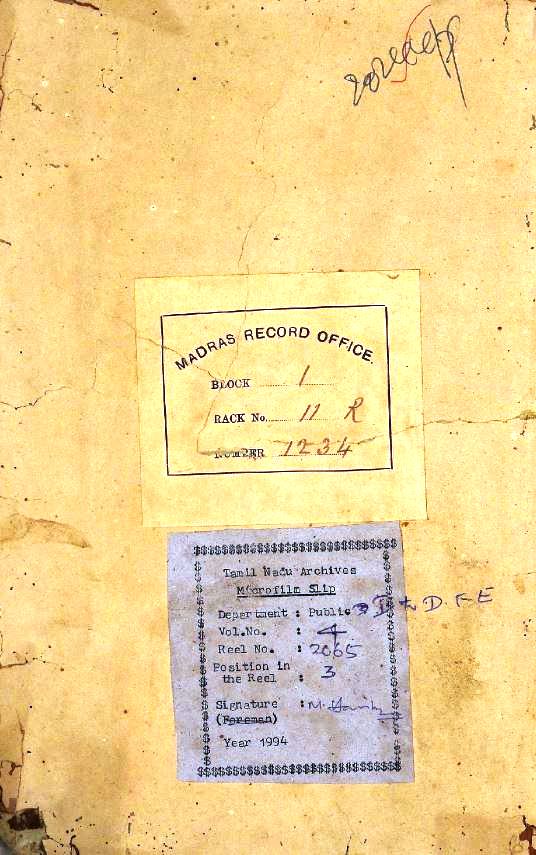 MADRAS RECORD OFFICE.
BLOCK 1
RACK No. 11 R
NUMBER 1234
Tamil Nadu Archives
Microfilm Slip
Department : Public D. F. E
Vol.No. : 4
Reel No. : 2065
Position in
the Reel : 3
Signature : M.
(Foreman)
Year 1994